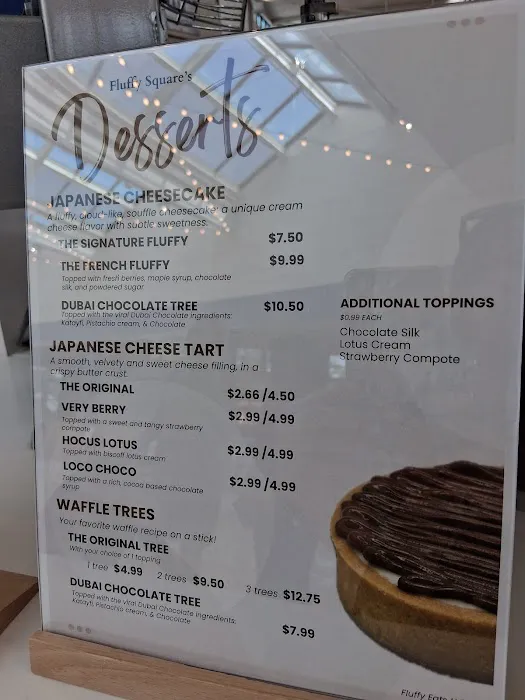 Fluffy Square's
Desserts
JAPANESE CHEESECAKE
A fluffy, cloud-like, souffle cheesecake; a unique cream
cheese flavor with subtle sweetness.
THE SIGNATURE FLUFFY $7.50
THE FRENCH FLUFFY $9.99
Topped with fresh berries, maple syrup, chocolate
silk, and powdered sugar
DUBAI CHOCOLATE TREE $10.50
Topped with the viral Dubai Chocolate ingredients:
Katayfi, Pistachio cream, & Chocolate
ADDITIONAL TOPPINGS
$0.99 EACH
Chocolate Silk
Lotus Cream
Strawberry Compote
JAPANESE CHEESE TART
A smooth, velvety and sweet cheese filling, in a
crispy butter crust.
THE ORIGINAL $2.66 /4.50
VERY BERRY $2.99 /4.99
Topped with a sweet and tangy strawberry
compote
HOCUS LOTUS $2.99 /4.99
Topped with biscoff lotus cream
LOCO CHOCO $2.99 /4.99
Topped with a rich, cocoa based chocolate
syrup
WAFFLE TREES
Your favorite waffle recipe on a stick!
THE ORIGINAL TREE
With your choice of 1 topping
1 tree $4.99 2 trees $9.50 3 trees $12.75
DUBAI CHOCOLATE TREE $7.99
Topped with the viral Dubai Chocolate ingredients:
Katayfi, Pistachio cream, & Chocolate
Fluffy